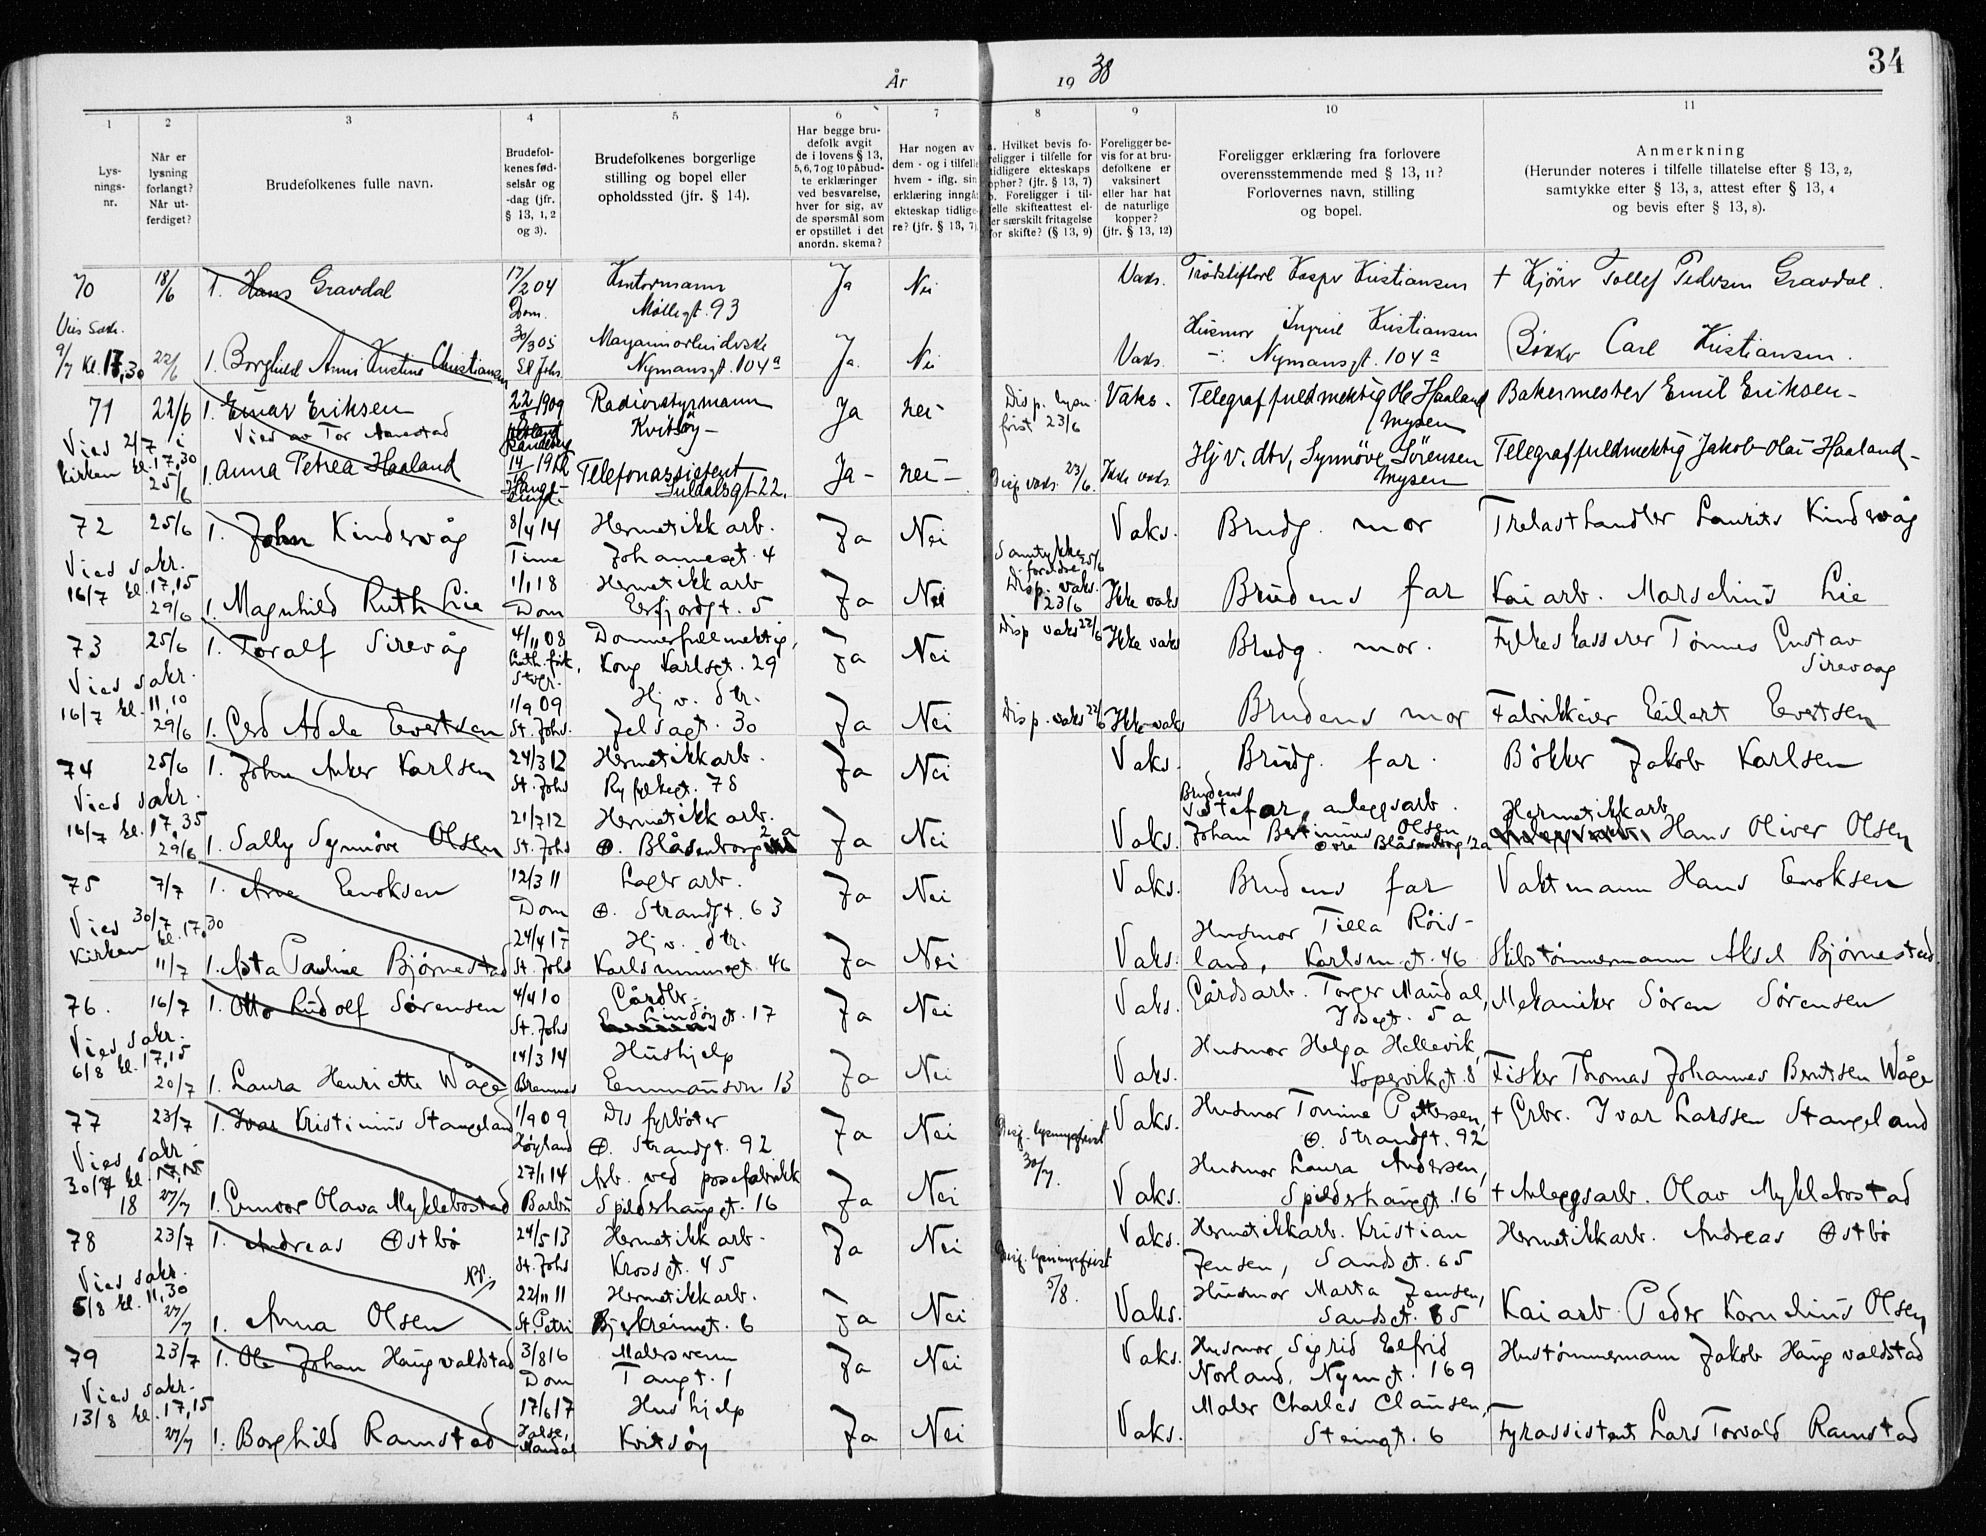 År 1938
34
1 2 3 4 5 6 7 8 9 10 11
Lys-
nings-
nr.
Når er
lysning
forlangt?
Når ut-
ferdiget?
Brudefolkenes fulle navn.
Brudefol-
kenes fød-
selsår og
-dag (jfr.
§ 13, 1, 2
og 3).
Brudefolkenes borgerlige
stilling og bopel eller
opholdssted (jfr. § 14).
Har begge bru-
defolk avgit
de i lovens § 13,
5, 6, 7 og 10 påbud-
te erklæringer
ved besvarelse,
hver for sig, av
de spørsmål som
er opstillet i det
anordn. skema?
Har nogen av
dem - og i tilfelle
hvem - iflg. sin
erklæring inngå
ekteskap tidlige-
re? (jfr. § 13, 7)
a. Hvilket bevis fo-
religger i tilfelle for
tidligere ekteskaps
ophør? (jfr. § 13, 7)
b. Foreligger i til-
felle skifteattest el-
ler særskilt fritagelse
for skifte? (§ 13, 9)
Foreligger be-
vis for at bru-
defolkene er
vaksinert
eller har hat
de naturlige
kopper?
(jfr. § 13, 12)
Foreligger erklæring fra forlovere
overensstemmende med § 13, 11?
Forlovernes navn, stilling
og bopel.
Anmerkning
(Herunder noteres i tilfelle tillatelse efter § 13, 2,
samtykke efter § 13, 3, attest efter § 13, 4
og bevis efter § 13, 8).
70 18/6 1. Hans Gravdal 17/2 04 Kontormann Ja Nei Vaks. Kasper Kristiansen + Kjører Tollef Pedersen Gravdal.
Dom. Møllegt. 93
30/3 05 Husmor Ingrid Kristiansen
9/7 kl. 17,30 22/6 1. Borghild Anni Kristine Christiansen St. Johs. Nymansgt. 104a Ja. Nei Vaks. Nymansgt. 104a Bøkker Carl Kristiansen.
71 22/6 1. Einar Eriksen 22/8 1909 Radiostyrmann Ja nei- Disp. lysn. Vaks. Telegraffuldmektig Ole Haaland Bakermester Emil Eriksen-
Vied av Tor Aanestad Kvitsøy- frist 23/6 Mysen
Vies 2/7 i
kirken kl. 17,30 1. Anna Petrea Haaland Telefonassistent Ja- nei- Disp. vaks. 23/6. Ikke vaks. Hjv. dtr, Synnöve Sörensen Telegraffuldmektig Jakob Olai Haaland-
25/6 Suldalsgt 22. Mysen
72 25/6 1. John Kindervåg 8/4 14 Hermetikkarb. Ja Nei Vaks. Brudg. mor Trelasthandler Laurits Kindervåg
Vies sakr. Time Johannesgt. 4 Samtykke foreldre 25/6
16/7 kl. 17,15 1/1 18 Hermetikkarb Disp. vaks.
29/6 1. Magnhild Ruth Lie Dom Erfjordgt. 5 Ja Nei 23/6 Ikke vaks Brudens far Kaiarb. Marselius Lie
73 25/6 1. Toralf Sirevåg 4/11 08 Dommerfullmektig, Ja Nei Disp vaks 22/6 Ikke vaks Brudg. mor. Fylkeskasserer Tønnes Gustav
Luth. frik. Stvgr. Kong Karlsgt. 29 Sirevaag
Vies sakr. 1/9 09 Hj v. dtr.
16/7 kl. 11,10
29/6 1. Gerd Adele Evertsen St. Johs. Jelsagt. 30 Ja Nei Disp. vaks 22/6 Ikke vaks Brudens mor Fabrikkeier Eilert Evertsen
74 25/6 1. John Anker Karlsen 24/3 12 Hermetikkarb. Ja Nei Vaks. Brudg. far. Bøkker Jakob Karlsen
Vies sakr. St. Johs Ryfylkegt. 78 Brudens
16/7 kl. 17,35 21/7 12 Hermetikkarb. stefar, anleggsarb. Hermetikkarb.
29/6 1. Sally Synnöve Olsen St. Johs Ø. Blåsenborg 2a Ja Nei Vaks. Johan Bertinius Olsen Hans Oliver Olsen
Øvre Blåsenborg 12a
75 7/7 1. Arne Enoksen 12/3 11 Lagerarb. Ja Nei Vaks. Brudens far Vaktmann Hans Enoksen
Vies 30/7 Dom Ø. Strandgt. 63
kirken kl. 17,30 24/4 17 Hj v. dtr. Husmor Tilla Røis-
11/7 1. Asta Pauline Bjørnestad St. Johs Karlsminnegt. 46 Ja Nei Vaks. land, Karlsm.gt. 46 Skibstømmermann Aksel Bjørnestad
76. 16/7 1. Otto Ludolf Sørensen 4/4 10 Gårdbr. Ja Nei Vaks. Gårdsarb. Torger Maudal, Mekaniker Søren Sørensen
Vies sakr. St. Johs Lindøygt. 17 Ibsgt. 5a
6/8 kl. 17,15 14/3 14 Hushjelp Husmor Helga Hellevik,
20/7 1. Laura Henriette Wåge Bremnes Emmausvn 13 Ja Nei Vaks. Kopervikgt. 8 Fisker Thomas Johannes Berntsen Wåge
77 23/7 1. Ivar Kristinius Stangeland 1/9 09 D/s fyrbøter Ja Nei Disp. lysningsfrist Vaks. Husmor Tomine Pettersen, + Grbr. Ivar Larssen Stangeland
Vies sakr Høyland Ø. Strandgt. 92 30/7. Ø. Strandgt. 92
30/7 kl. 17,15 27/1 14 Arb. ved posefabrikk Husmor Laura Andersen,
18 27/7 1. Gunvor Olava Myklebostad Barbu Spilderhauggt. 16 Ja Nei Vaks. Spilderhauggt. 16 + Anleggsarb. Olav Myklebostad
78 23/7 1. Andreas Østbø 24/5 13 Hermetikkarb. Ja Nei Disp. lysningsfrist Vaks. Hermetikkarb. Kristian Hermetikkarb. Andreas Østbø
Vies sakr. St. Johs Krossgt. 45 5/8. Jensen, Sandsgt. 65
5/8 kl. 11,30 NB! 22/11 11 Hermetikkarb. Husmor Marta Jensen,
27/7 1. Anna Olsen St. Petri Bjerkreimgt. 6 Ja Nei Vaks. Sandsgt. 65 Kaiarb. Peder Kornelius Olsen
79 23/7 1. Ole Johan Haugvaldstad 3/8 16 Malersvenn Ja Nei Vaks. Husmor Sigrid Elfrid Hustømmermann Jakob Haugvaldstad
Vies sakr. Dom Tangt. 1 Norland, Nymgt. 169
13/8 kl. 17,15 17/6 17 Hushjelp Maler Charles Clausen,
27/7 1. Borghild Ramstad Halse, Mandal Kvitsøy Ja Nei Vaks. Steingt. 6 Fyrassistent Lars Torvald Ramstad